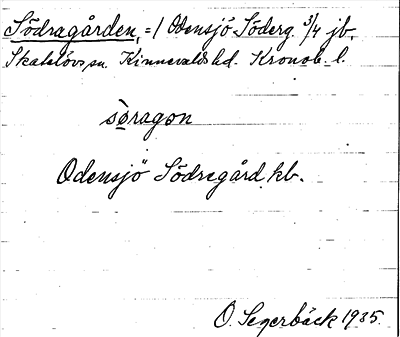 Södragården, =/ Odensjö Söderg. 3/4 jb.
Skatelövs sn. Kinnevalds hd. Kronob. l.
söragon
Odensjö Södregård, kb.
O. Segerbäck 1935.